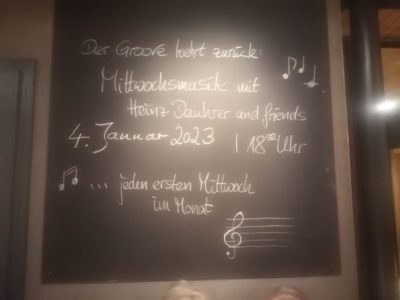 Der Groove kehrt zurück:
Mittwochsmusik mit
Heinz Dauhrer and friends
4. Januar 2023 | 18:00 Uhr
... jeden ersten Mittwoch
im Monat